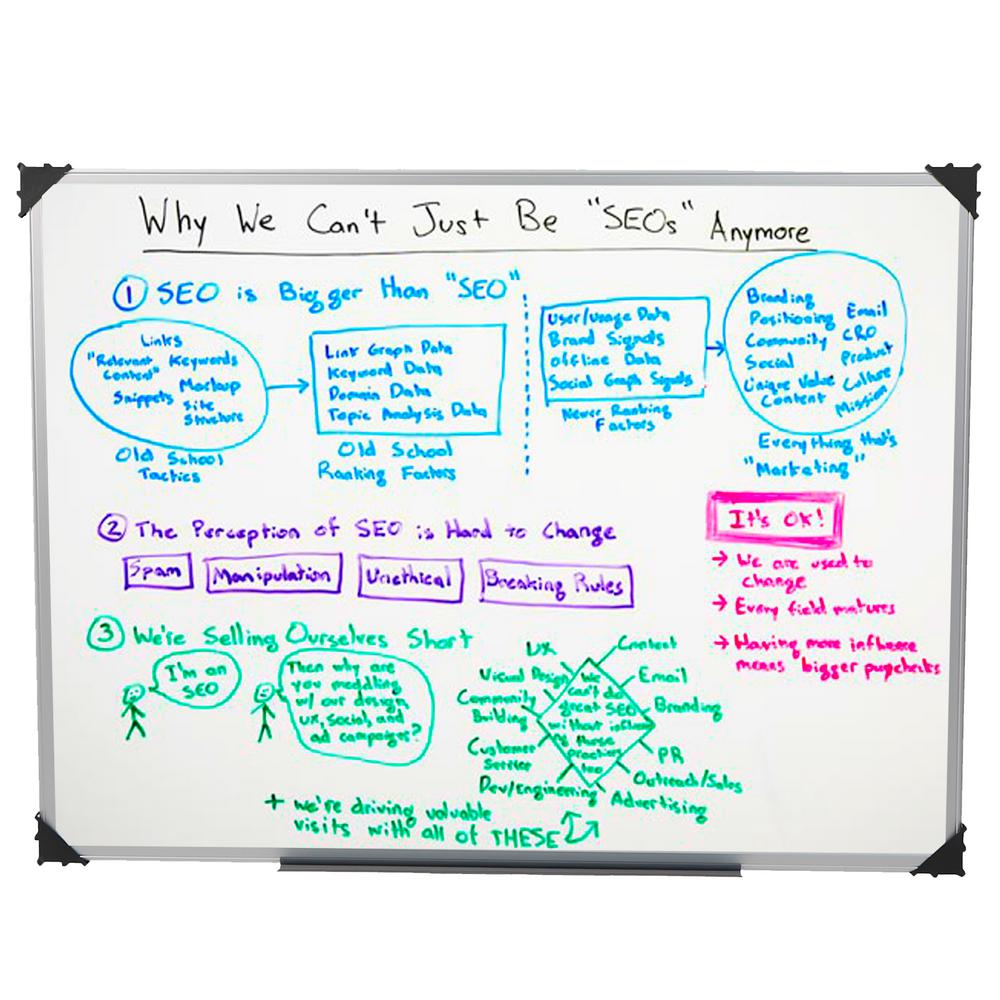 Why We Can't Just Be "SEOs" Anymore
① SEO is Bigger than "SEO"
Links
"Relevant Keywords
Content"
Markup
Snippets
Site
Structure
Old School
Tactics
Link Graph Data
Keyword Data
Domain Data
Topic Analysis Data
Old School
Ranking Factors
User/usage Data
Brand Signals
Offline Data
Social Graph Signals
Newer Ranking
Factors
Branding
Positioning
Email
Community
CRO
Social
Product
Unique Value
Culture
Content
Mission
Everything that's
"Marketing"
② The Perception of SEO is Hard to Change
Spam
Manipulation
Unethical
Breaking Rules
It's OK!
→ We are used to
change
→ Every field matures
→ Having more influence
means bigger paychecks
③ We're Selling Ourselves Short
I'm an
SEO
Then why are
you meddling
w/ our design,
UX, social, and
ad campaigns?
UX
Visual Design
Community
Building
Customer
Service
Dev/Engineering
We
can't do
great SEO
without influence
of these
practices
too
Content
Email
Branding
PR
Outreach/Sales
Advertising
+ we're driving valuable
visits with all of THESE